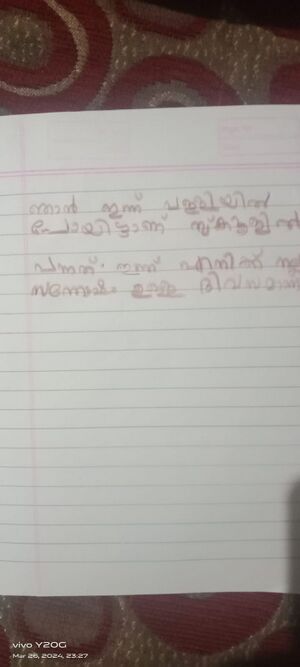 ഞാൻ ഇന്ന് പള്ളിയിൽ
പോയിട്ടാണ് സ്കൂളിൽ
വന്നത്. ഇന്ന് എനിക്ക്
സന്തോഷം ഉള്ള ദിവസമാണ്
vivo Y20G
Mar 26, 2024, 23:27